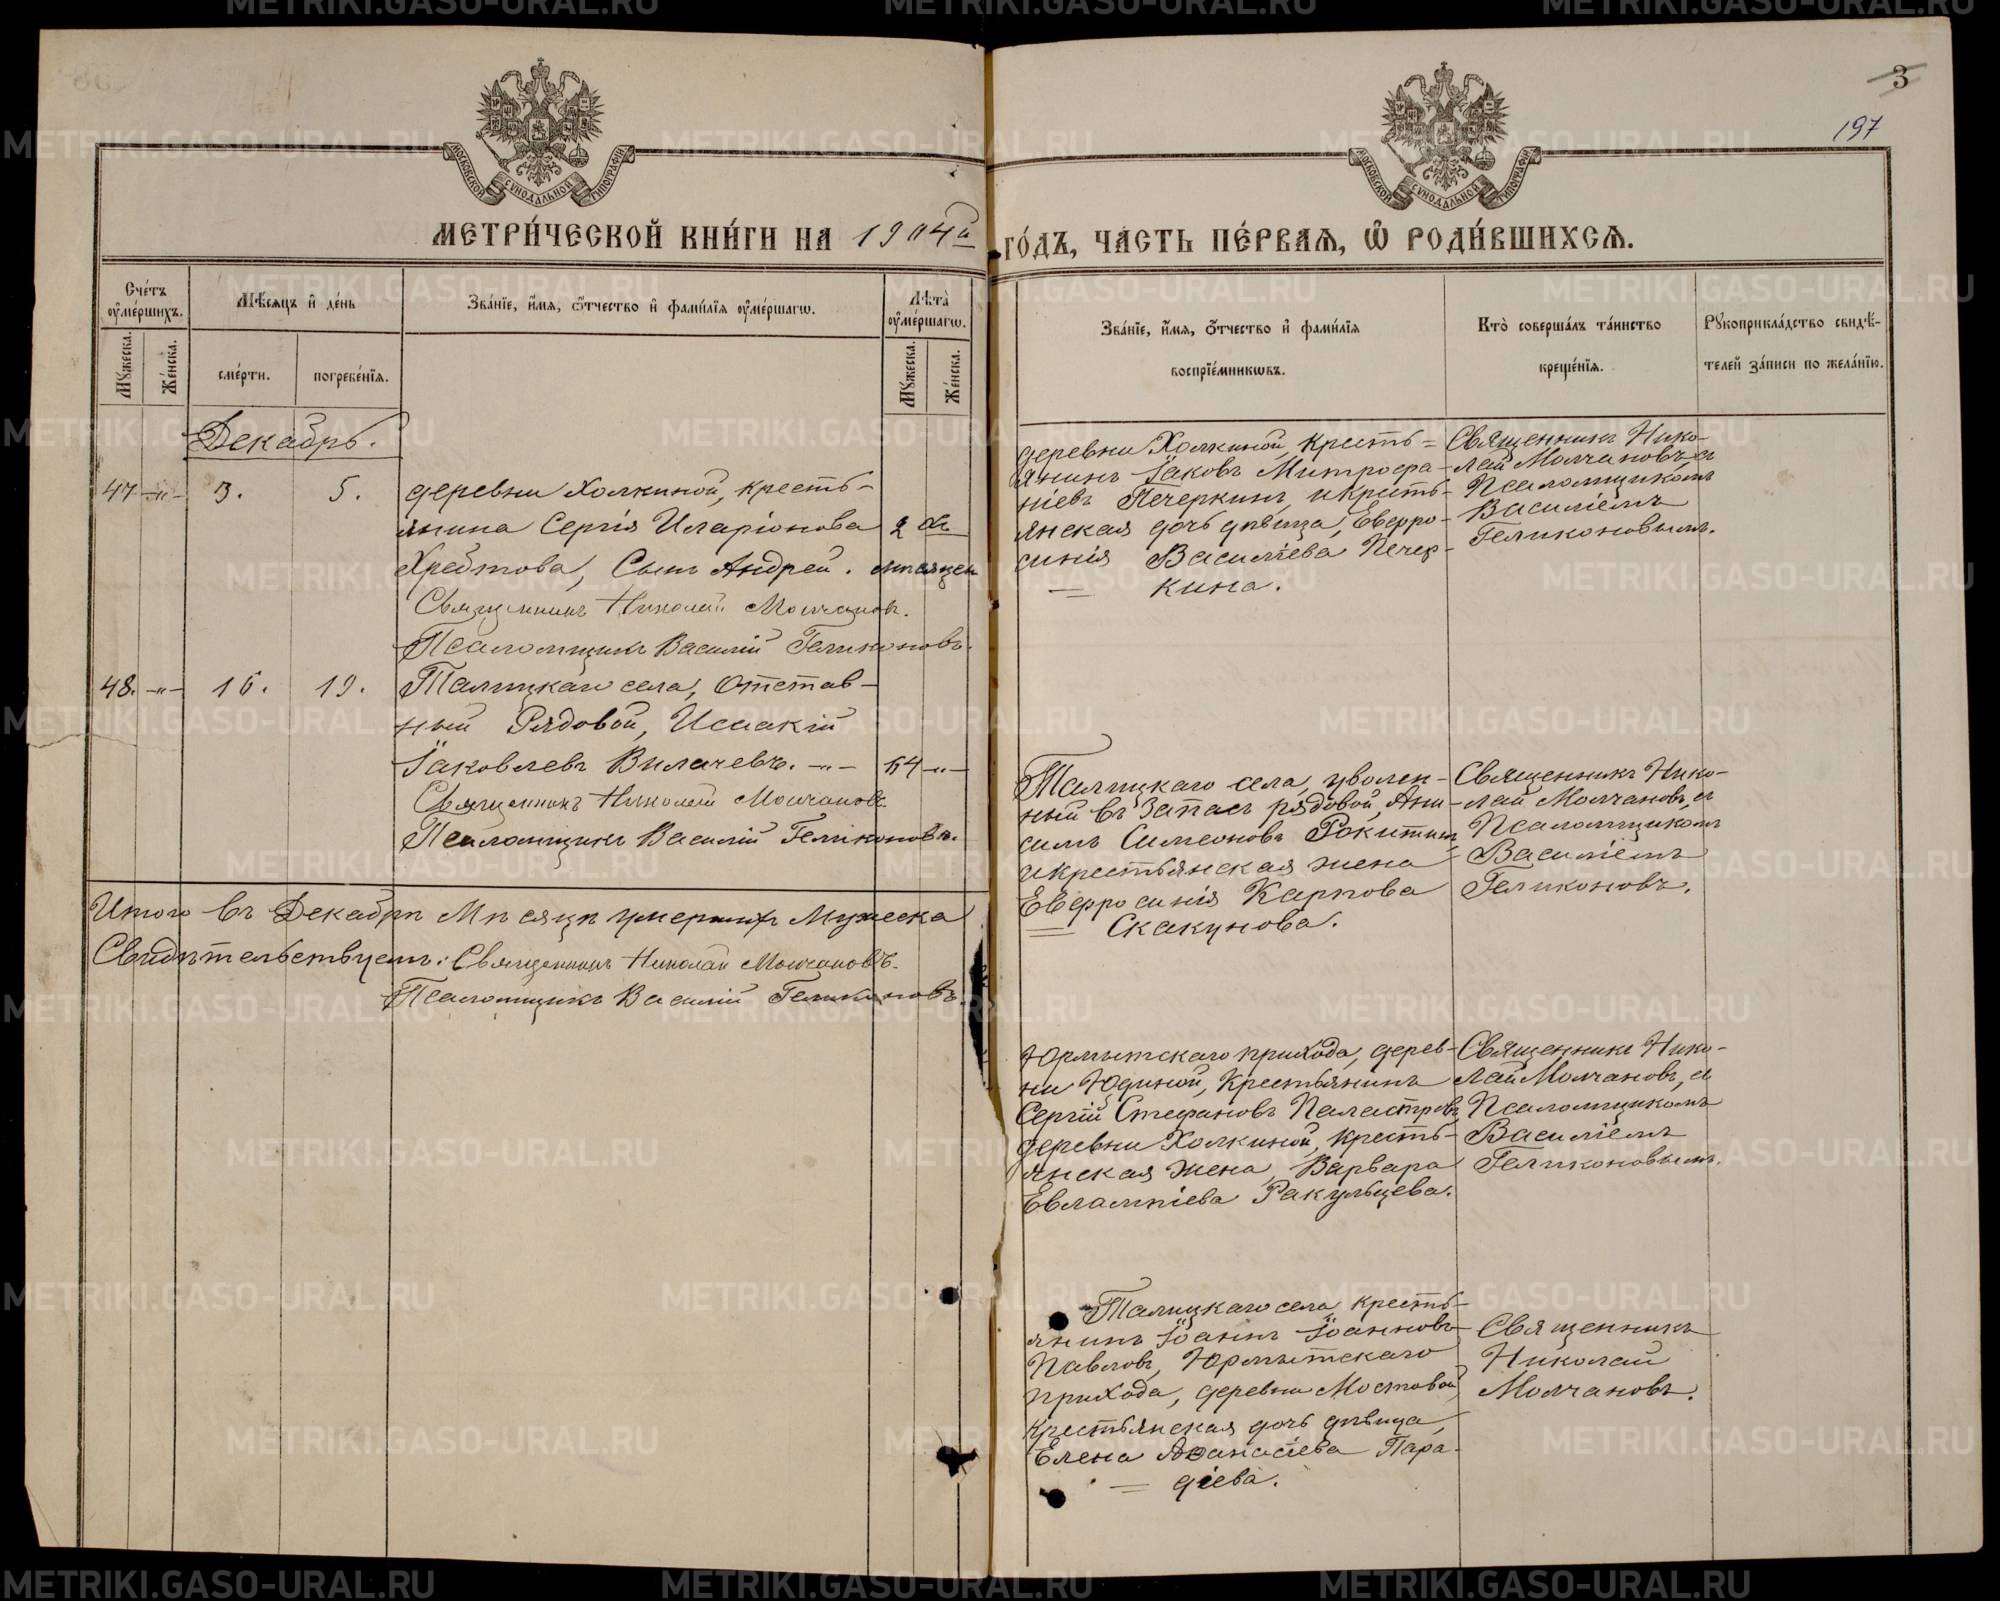 3
197
МОСКОВСКОЙ СѴНОДАЛЬНОЙ ТИПОГРАФІИ
МЕТРИ́ЧЕСКОЙ КНИ́ГИ НА 1904й
Сче́тъ ᲂу҆ме́ршихъ.
Мѣ́сяцъ и҆ де́нь
Зва́нїе, и҆́мя, ѻ҆́тчество и҆ фами́лїя ᲂу҆ме́ршагѡ.
Лѣта̀ ᲂу҆ме́ршагѡ.
Мꙋ́жеска.
Же́нска.
сме́рти.
погребе́нїя.
Мꙋ́жеска.
Же́нска.
Декабрь.
47 -"- 3. 5. деревни Холкиной, кресть-
янина Сергія Иларіонова 2
Хребтова, Сынъ Андрей. мѣсяцев
Священникъ Николай Молчановъ.
Псаломщикъ Василій Геликоновъ.
48. -"- 16. 19. Талицкаго села, Отстав-
ный Рядовой, Исаакій
Іаковлевъ Вилачевъ. -"- 64 -"-
Священникъ Николай Молчановъ
Псаломщикъ Василій Геликоновъ.
Итого въ Декабрѣ Мѣсяцѣ умершихъ Мужеска
Свидѣтельствуемъ: Священникъ Николай Молчановъ.
Псаломщикъ Василій Геликоновъ.
МОСКОВСКОЙ СѴНОДАЛЬНОЙ ТИПОГРАФІИ
ГО́ДЪ, ЧА́СТЬ ПЕ́РВАЯ, Ѽ РОДИ́ВШИХСЯ.
Зва́нїе, и҆́мя, ѻ҆́тчество и҆ фами́лїя
воспрїе́мникѡвъ.
Кто̀ соверша́лъ та́инство
креще́нїя.
Рꙋкоприкла́дство свидѣ́-
телей за́писи по жела́нїю.
деревни Холкиной, кресть-
янинъ Іаковъ Митрофа-
ніевъ Печеркинъ, и кресть-
янская дочь дѣвица, Евфро-
синія Василіева Печер-
кина.
Священникъ Нико-
лай Молчановъ, съ
Псаломщикомъ
Василіемъ
Геликоновымъ.
Талицкаго села, уволен-
ный въ Запасъ рядовой, Ани-
симъ Симеоновъ Рокитинъ
и крестьянская жена
Евфросинія Карпова
Скакунова.
Священникъ Нико-
лай Молчановъ, съ
Псаломщикомъ
Василіемъ
Геликоновъ.
Юрмытскаго прихода, дерев-
ни Юдиной, Крестьянинъ
Сергій Стефановъ Паластровъ
деревни Холкиной, кресть-
янская жена, Варвара
Евлампіева Ракульцева.
Священникъ Нико-
лай Молчановъ, съ
Псаломщикомъ
Василіемъ
Геликоновымъ.
Талицкаго села, кресть-
янинъ Іоаннъ Іоанновъ
Павловъ, Юрмытскаго
прихода, деревни Мостовой,
крестьянская дочь дѣвица,
Елена Аѳанасіева Пара-
діева.
Священникъ
Николай
Молчановъ.
METRIKI.GASO-URAL.RU